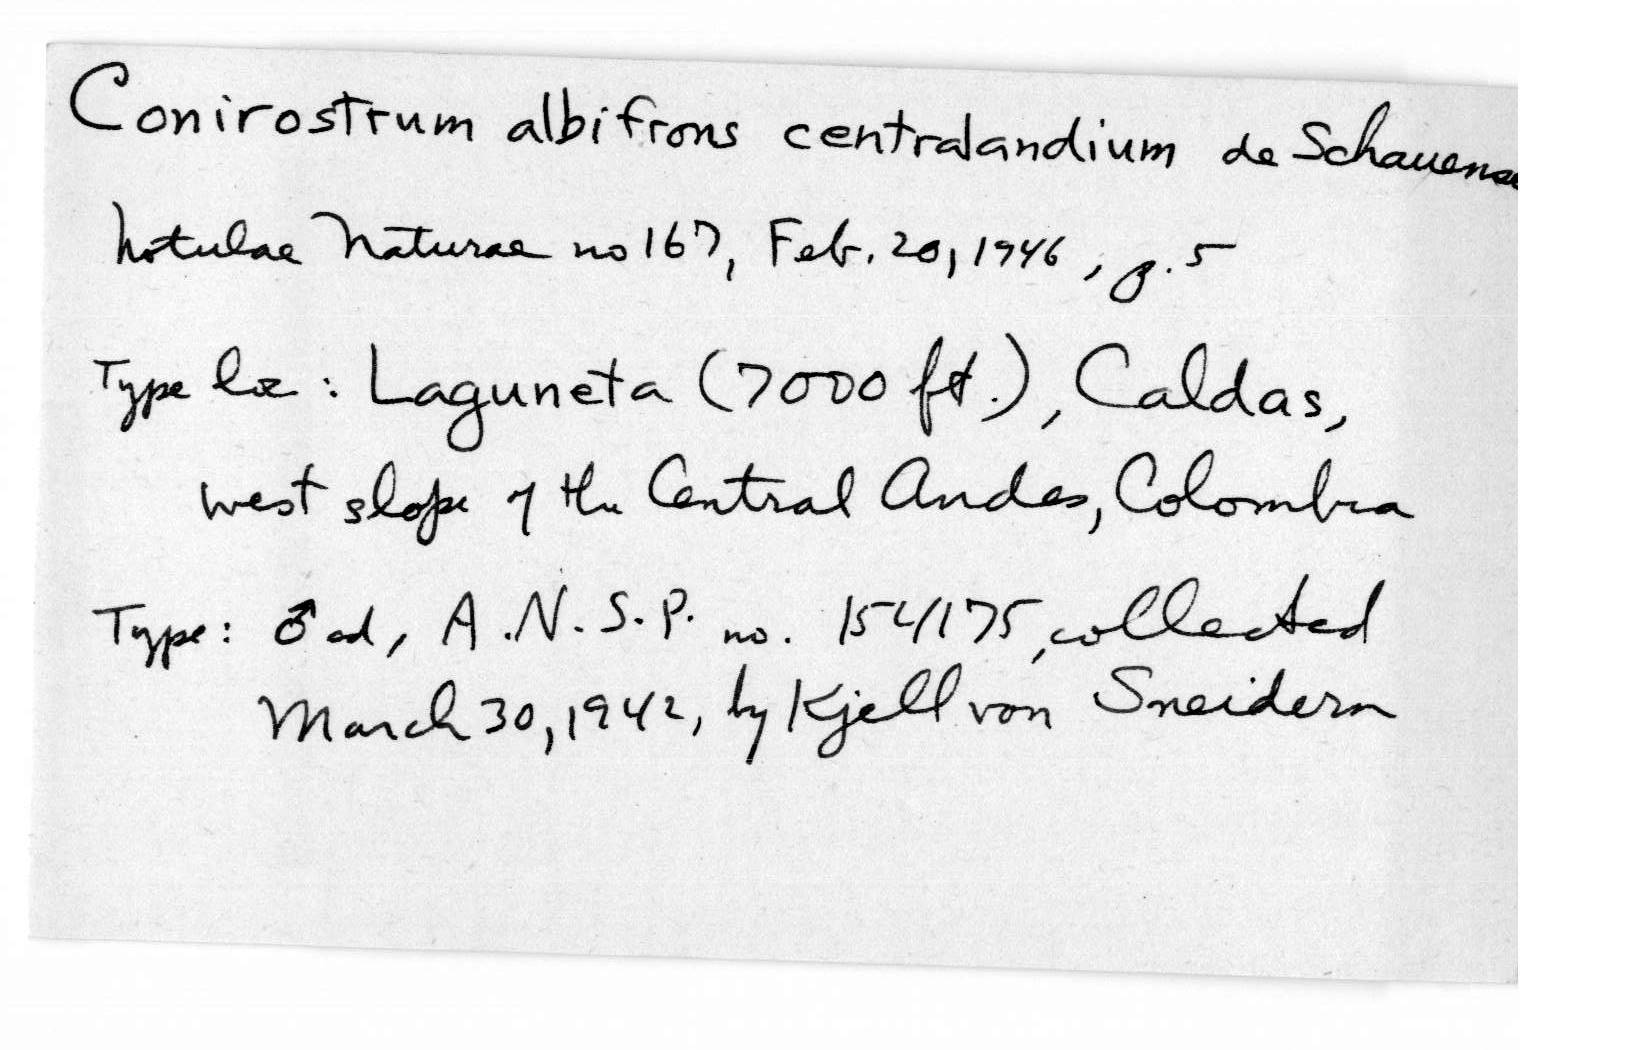 Conirostrum albifrons centralandium de Schauense
Notulae Naturae no 167, Feb. 20, 1946, p. 5
Type loc: Laguneta (7000 ft.), Caldas,
west slope of the Central Andes, Colombia
Type: ♂ ad, A.N.S.P. no. 154175, collected
March 30, 1942, by Kjell von Sneidern